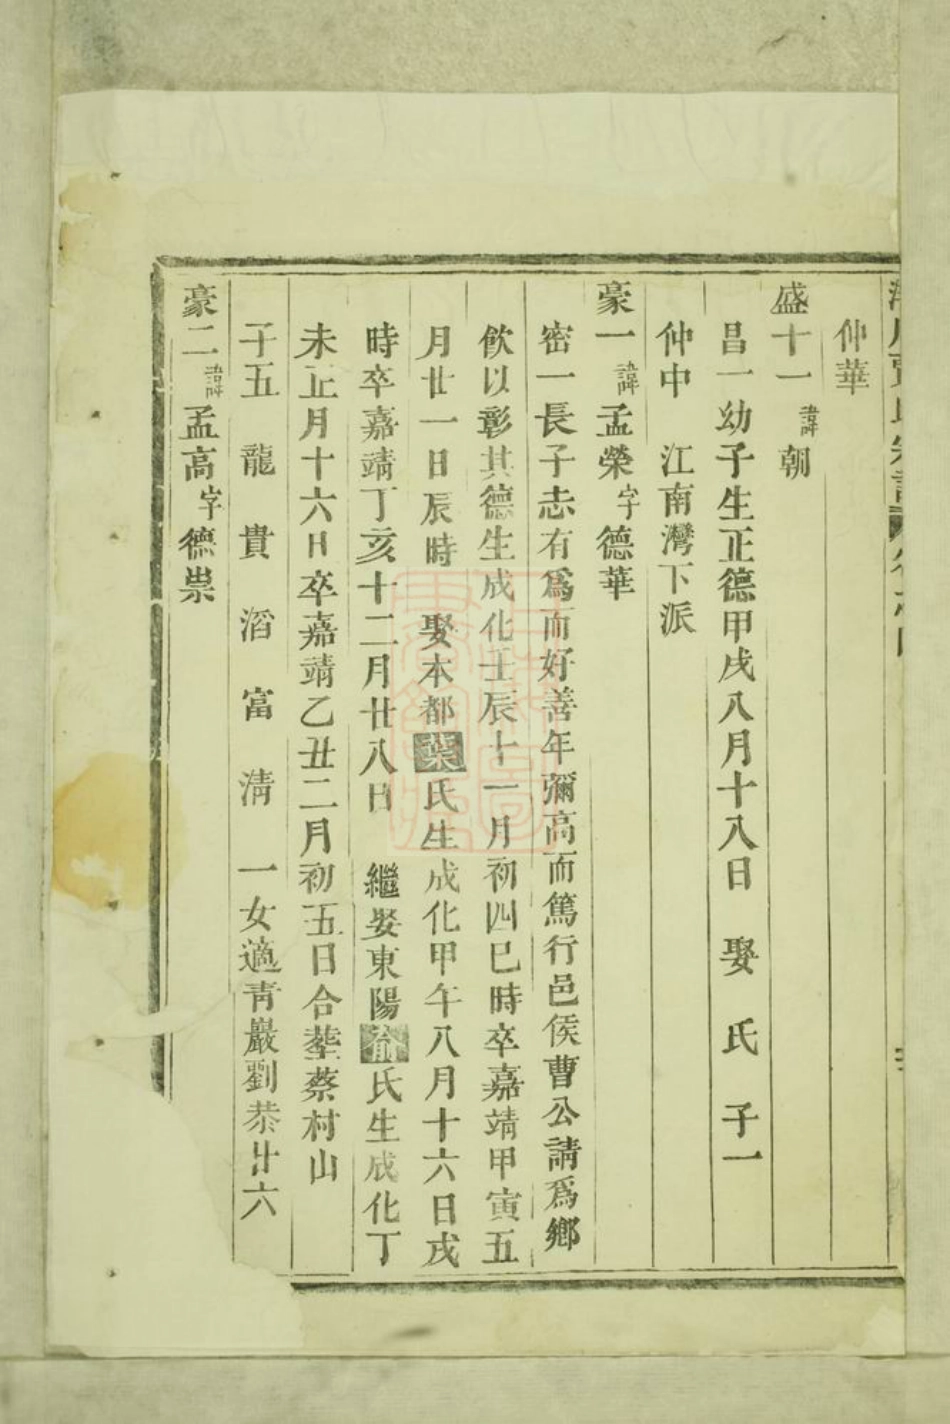 仲華
盛十一諱朝
昌一幼子生正德甲戌八月十八日 娶 氏 子一
仲中 江南灣下派
豪一諱孟榮字德華
密一長子志有爲而好善年彌高而篤行邑侯曹公請爲鄉
飲以彰其德生成化壬辰十一月初四巳時卒嘉靖甲寅五
月廿一日辰時 娶本都葉氏生成化甲午八月十六日戌
時卒嘉靖丁亥十二月廿八日 繼娶東陽俞氏生成化丁
未正月十六日卒嘉靖乙丑二月初五日合塟蔡村山
子五 龍 貴 滔 富 淸 一女適靑巖劉恭廿六
豪二諱孟高字德崇